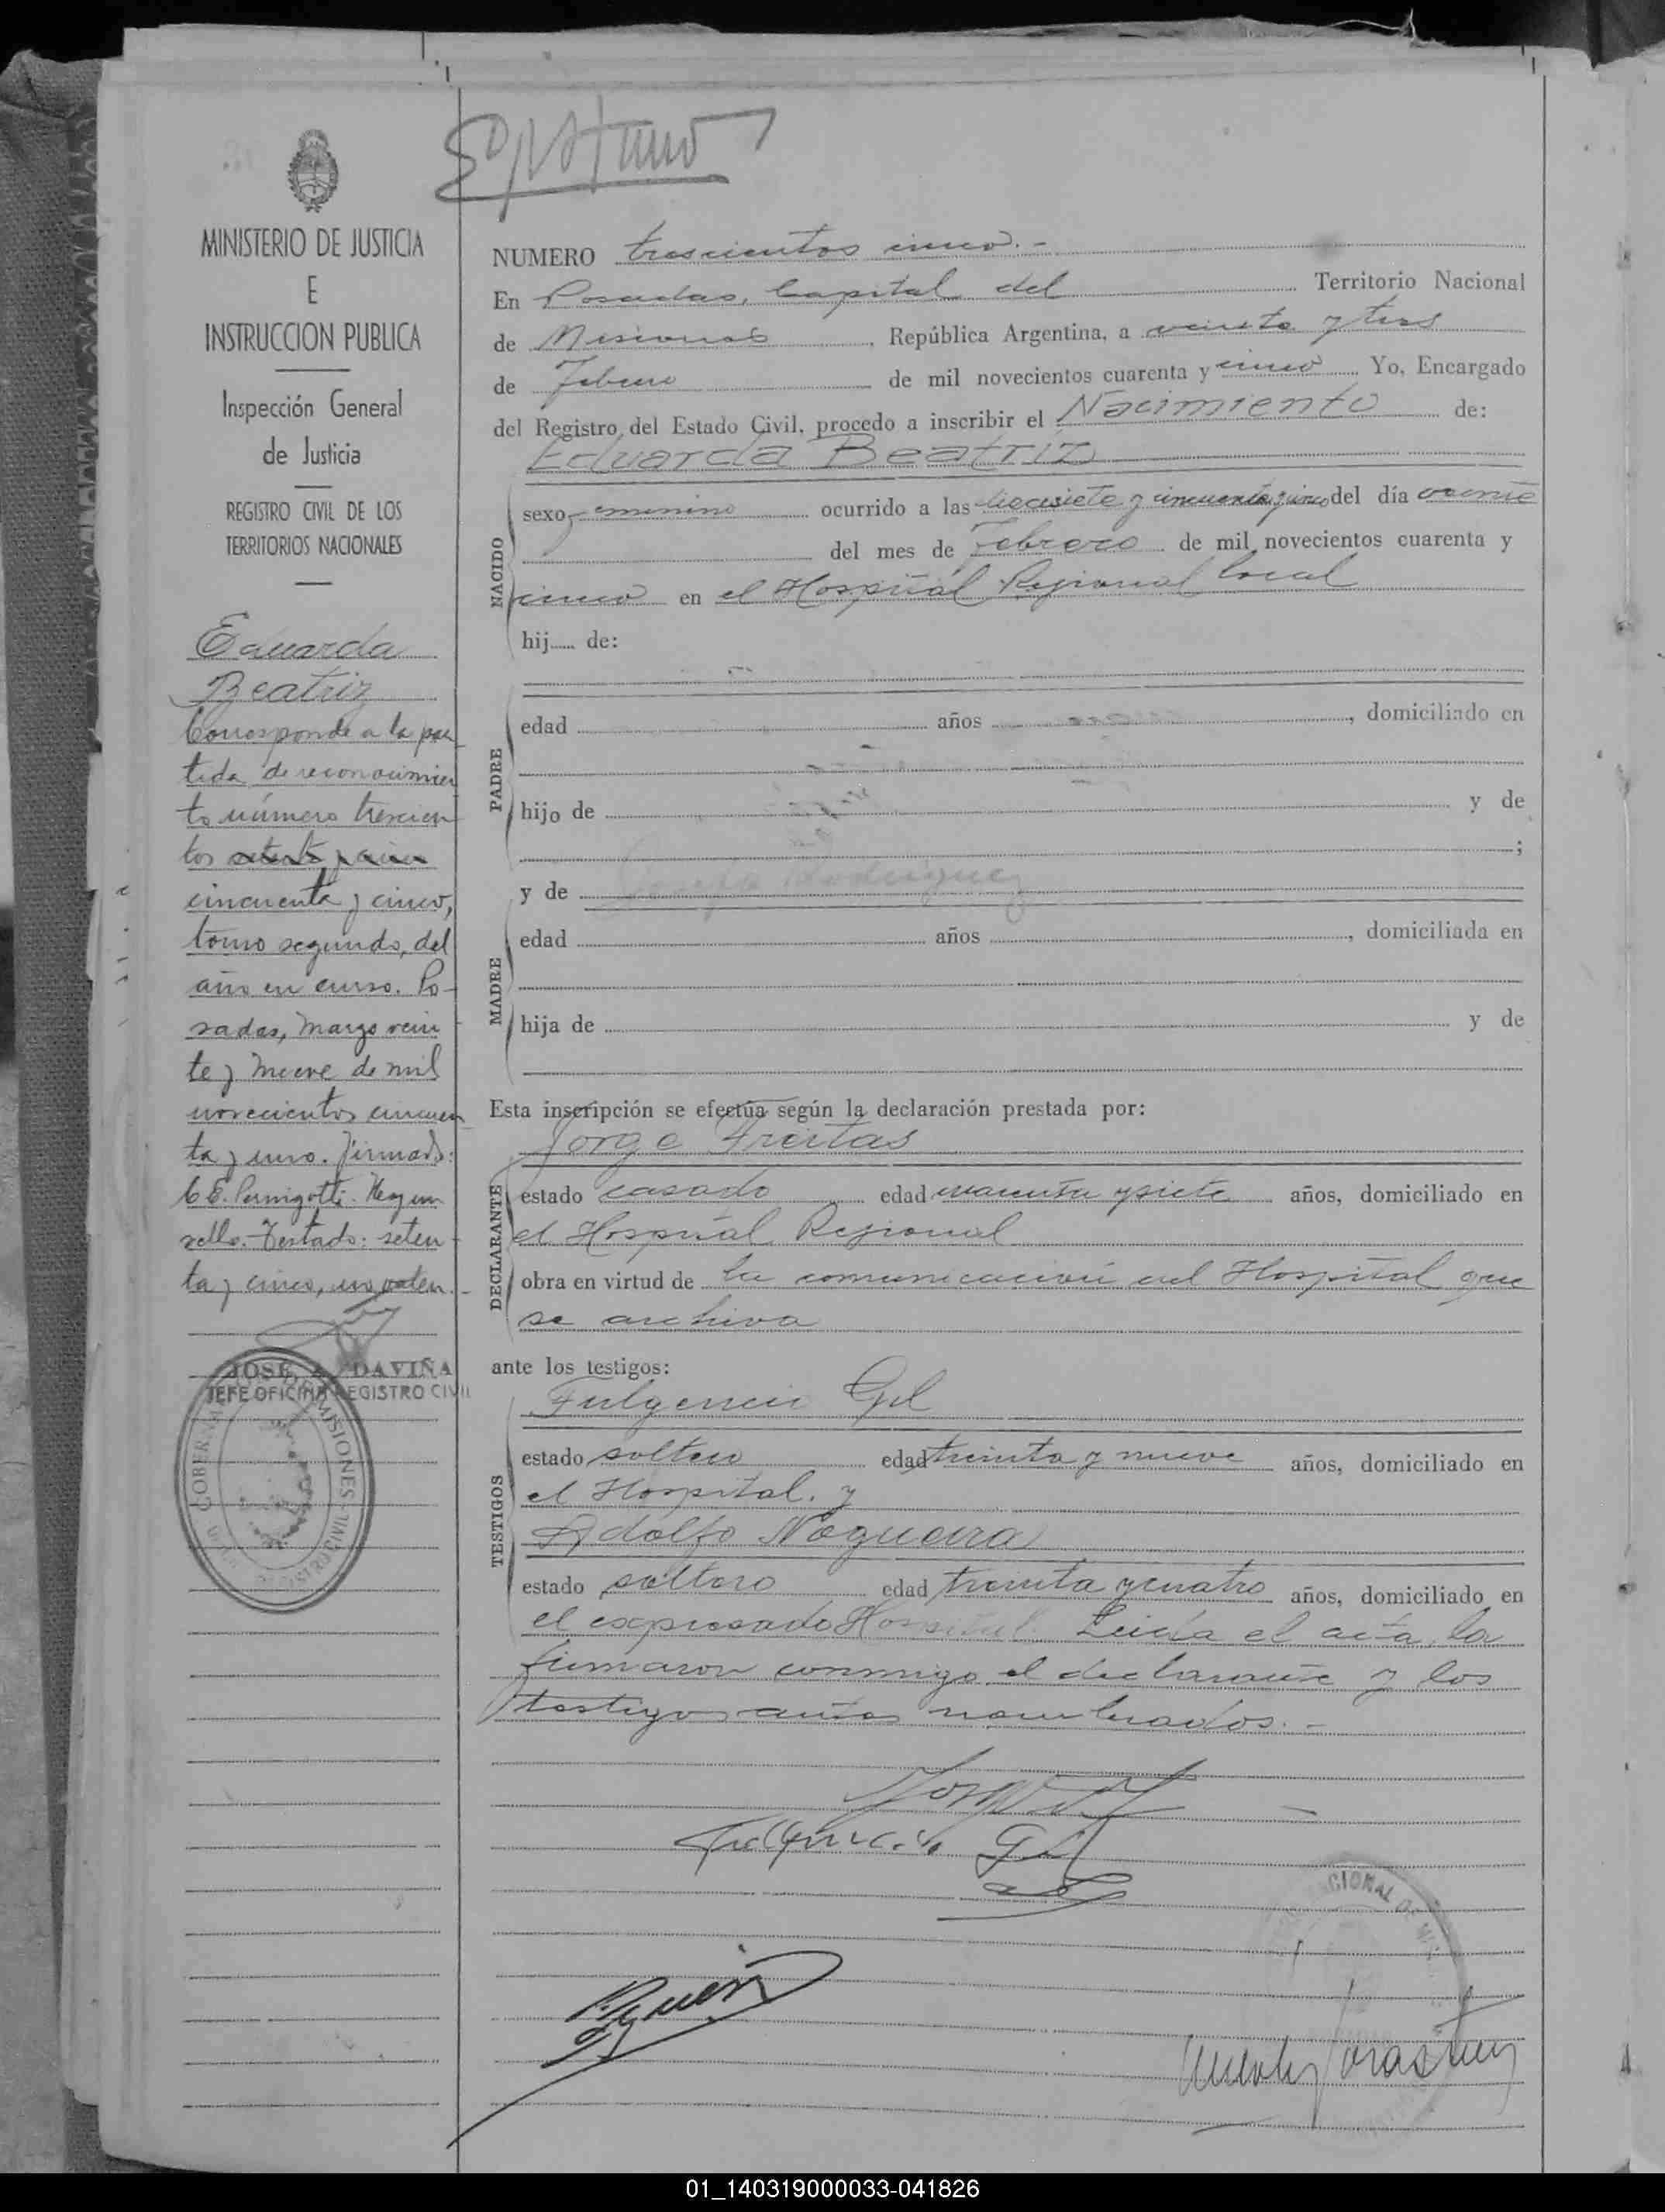 MINISTERIO DE JUSTICIA
E
INSTRUCCION PUBLICA
Inspección General
de Justicia
REGISTRO CIVIL DE LOS
TERRITORIOS NACIONALES
Eduarda
Beatriz
Corresponde a la par
tida de reconocimien
to número trescien
tos
cincuenta y cinco,
tomo segundo, del
año en curso. Po-
sadas, Marzo vein
te y nueve de mil
novecientos cincuen
ta y uno. Firmado:
C. E. Pernigotti. Hay un
sello. Testado: seten-
ta y cinco, no valen.-
JOSE A. DAVIÑA
JEFE OFICINA REGISTRO CIVIL
NUMERO trescientos cinco.-
En Posadas, Capital del Territorio Nacional
de Misiones, República Argentina, a veinte y tres
de Febrero de mil novecientos cuarenta y cinco Yo, Encargado
del Registro del Estado Civil, procedo a inscribir el Nacimiento de:
Eduarda Beatriz
NACIDO
sexo femenino ocurrido a las diecisiete y cincuenta y cinco del día veinte
del mes de Febrero de mil novecientos cuarenta y
cinco en el Hospital Regional local
hij..... de:
PADRE
edad años , domiciliado en
hijo de y de
;
y de Rodriguez
MADRE
edad años , domiciliada en
hija de y de
Esta inscripción se efectúa según la declaración prestada por:
Jorge Freitas
DECLARANTE
estado casado edad cuarenta y siete años, domiciliado en
el Hospital Regional
obra en virtud de la comunicación del Hospital que
se archiva
ante los testigos:
Fulgencio Gil
TESTIGOS
estado soltero edad treinta y nueve años, domiciliado en
el Hospital. y
Adolfo Nogueira
estado soltero edad treinta y cuatro años, domiciliado en
el expresado Hospital. Leída el acta, la
firmaron conmigo el declarante y los
testigos antes nombrados.-
Fulgencio Gil
01_140319000033-041826